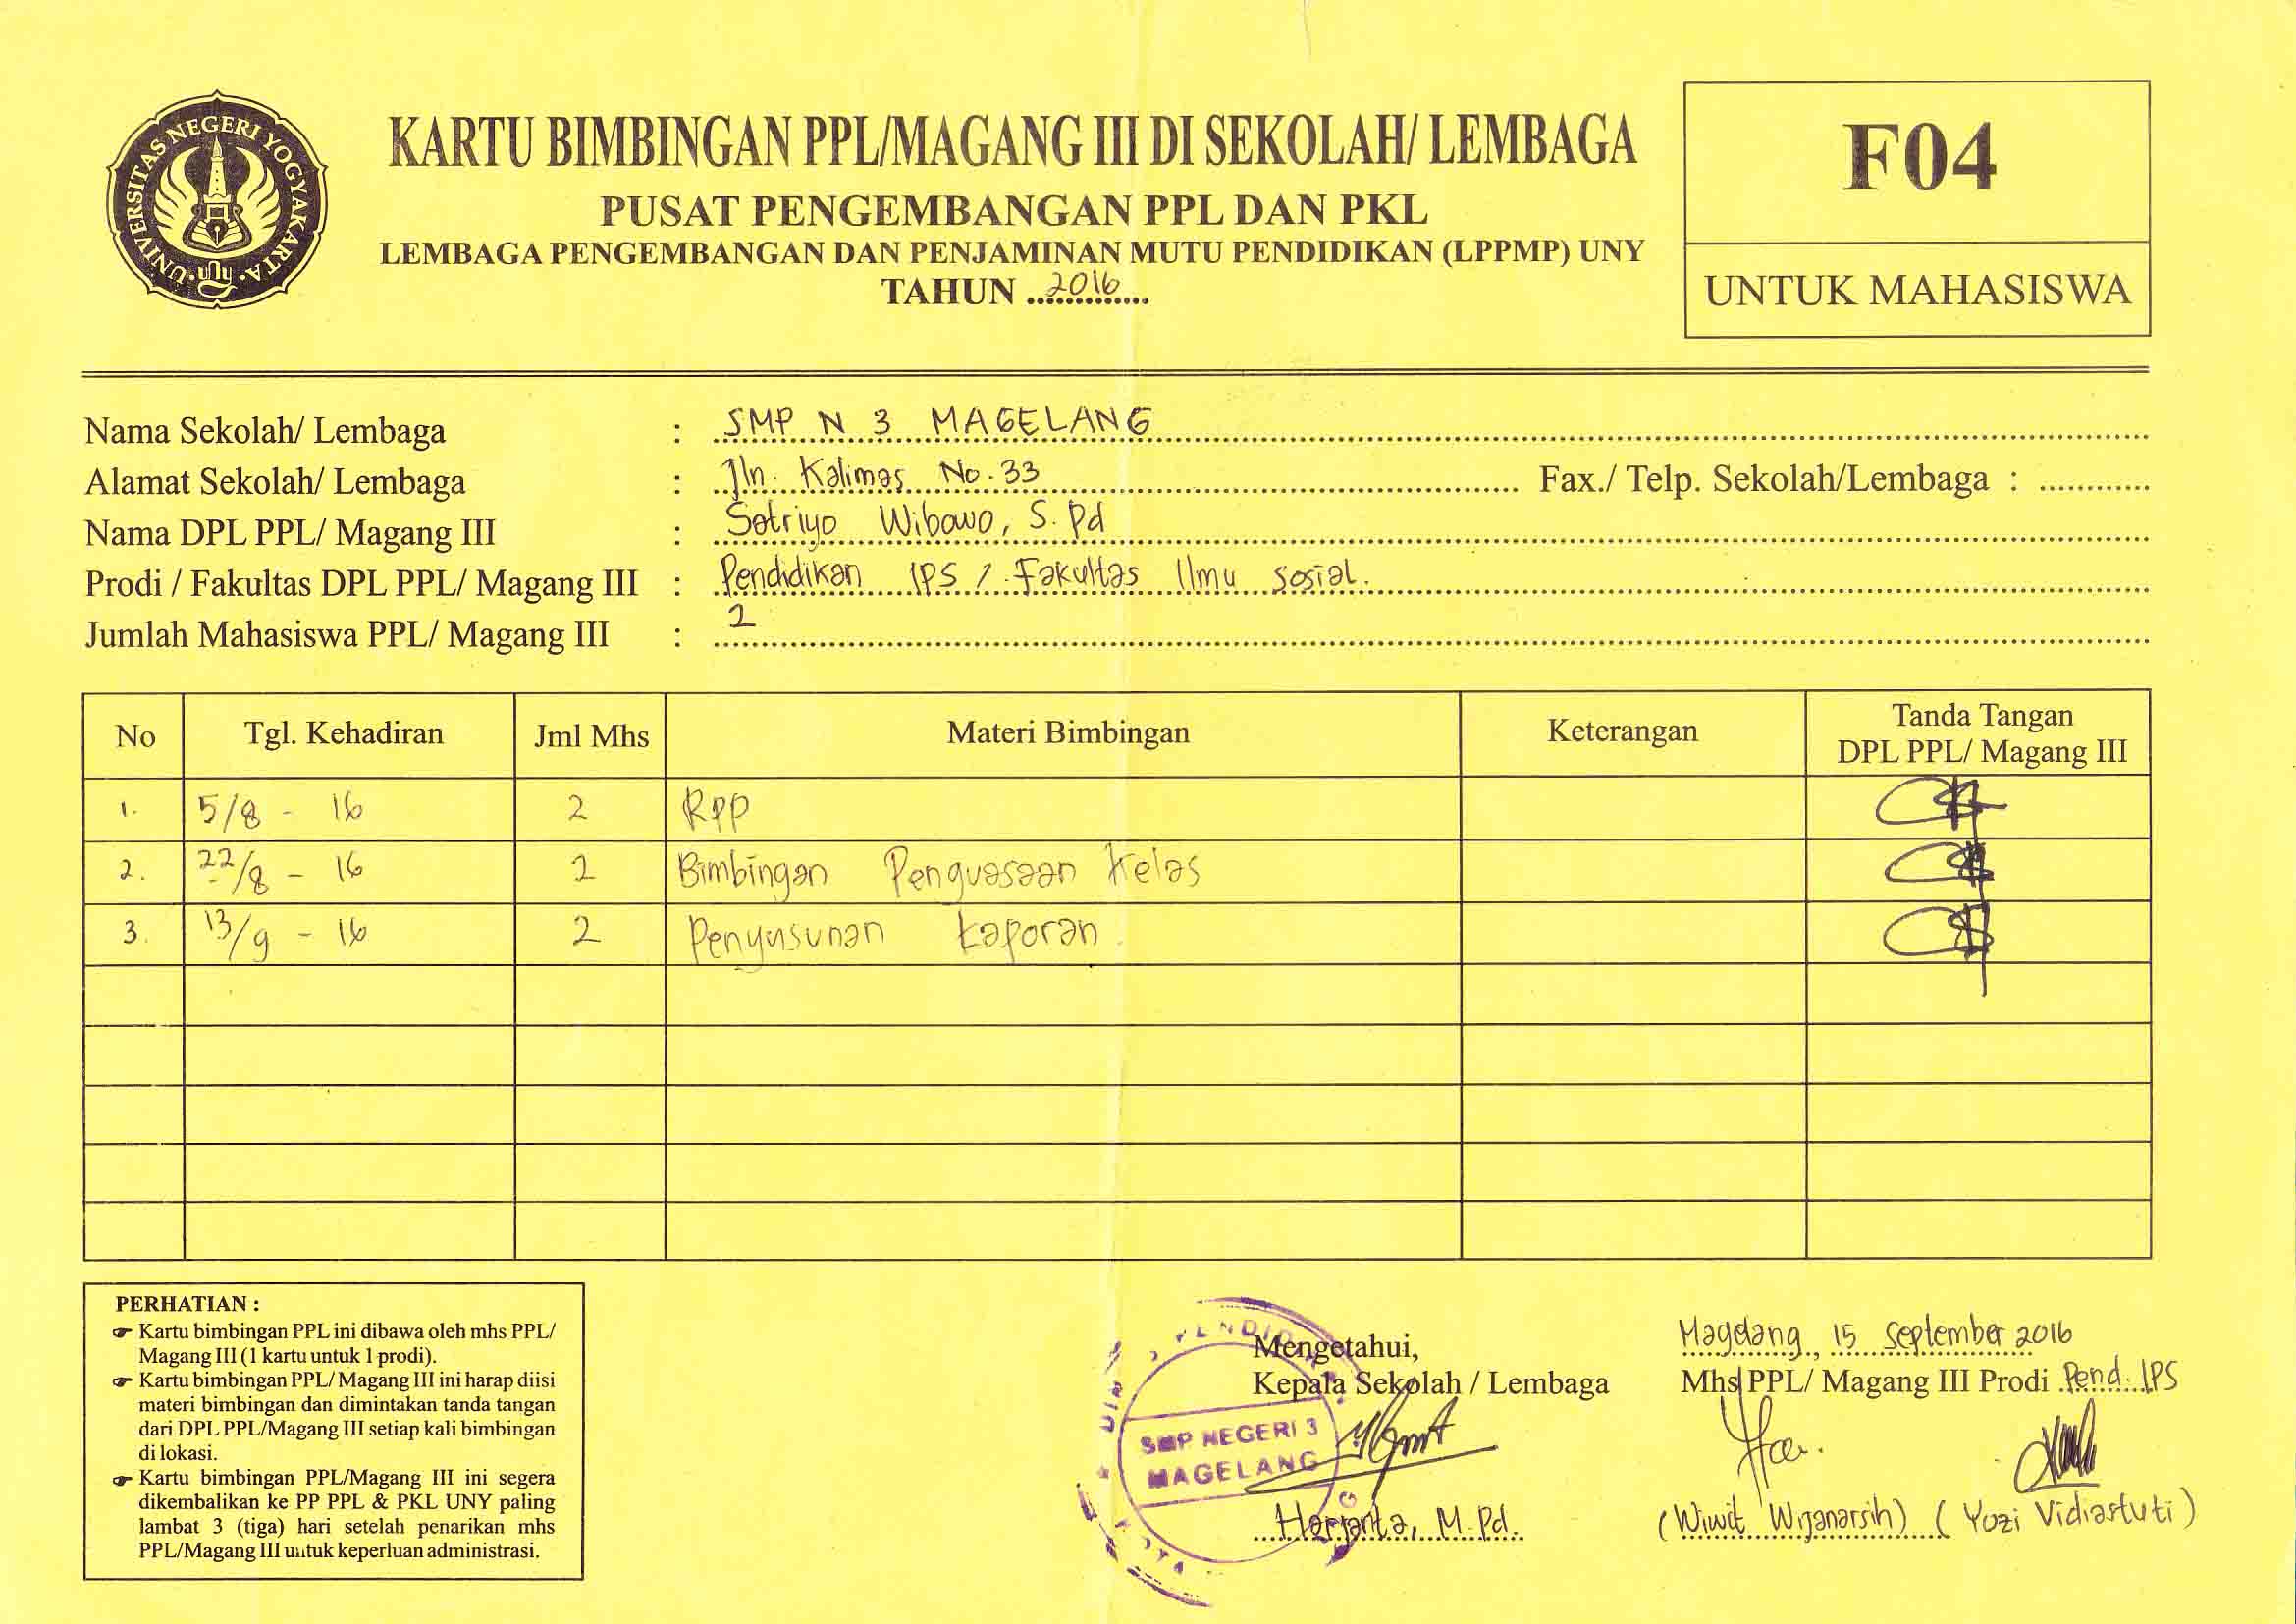 UNIVERSITAS NEGERI YOGYAKARTA
KARTU BIMBINGAN PPL/MAGANG III DI SEKOLAH/ LEMBAGA
PUSAT PENGEMBANGAN PPL DAN PKL
LEMBAGA PENGEMBANGAN DAN PENJAMINAN MUTU PENDIDIKAN (LPPMP) UNY
TAHUN 2016
F04
UNTUK MAHASISWA
Nama Sekolah/ Lembaga : SMP N 3 MAGELANG
Alamat Sekolah/ Lembaga : Jln. Kalimas No. 33 Fax./ Telp. Sekolah/Lembaga : ............
Nama DPL PPL/ Magang III : Satriyo Wibowo, S. Pd
Prodi / Fakultas DPL PPL/ Magang III : Pendidikan IPS / Fakultas Ilmu Sosial.
Jumlah Mahasiswa PPL/ Magang III : 2
No Tgl. Kehadiran Jml Mhs Materi Bimbingan Keterangan Tanda Tangan DPL PPL/ Magang III
1. 5/8 - 16 2 RPP
2. 22/8 - 16 2 Bimbingan Penguasaan Kelas
3. 13/9 - 16 2 Penyusunan Laporan.
PERHATIAN :
Kartu bimbingan PPL ini dibawa oleh mhs PPL/
Magang III (1 kartu untuk 1 prodi).
Kartu bimbingan PPL/ Magang III ini harap diisi
materi bimbingan dan dimintakan tanda tangan
dari DPL PPL/Magang III setiap kali bimbingan
di lokasi.
Kartu bimbingan PPL/Magang III ini segera
dikembalikan ke PP PPL & PKL UNY paling
lambat 3 (tiga) hari setelah penarikan mhs
PPL/Magang III untuk keperluan administrasi.
Mengetahui,
Kepala Sekolah / Lembaga
SMP NEGERI 3
MAGELANG
Harjanta, M.Pd.
Magelang, 15 September 2016
Mhs PPL/ Magang III Prodi Pend. IPS
(Wiwit Wijanarsih) (Yozi Vidiastuti)